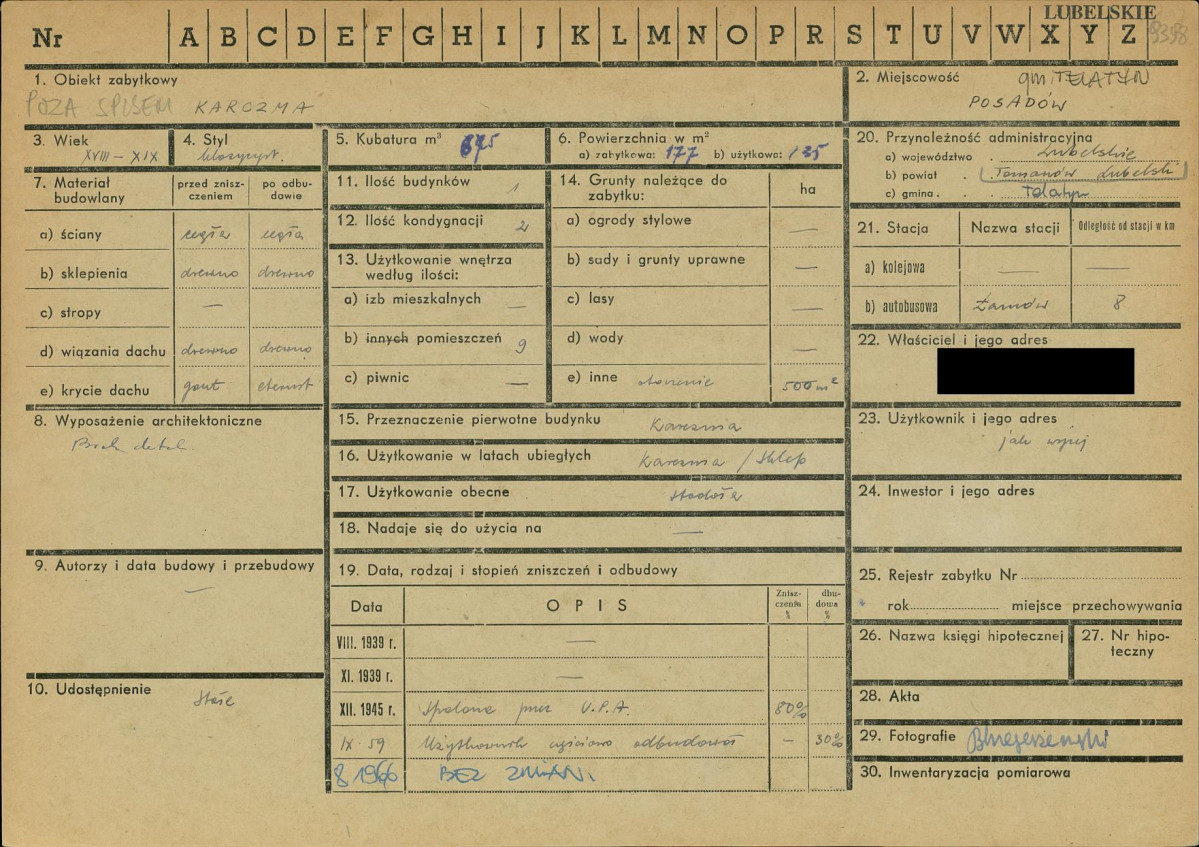 LUBELSKIE
9398
Nr A B C D E F G H I J K L M N O P R S T U V W X Y Z
1. Obiekt zabytkowy
POZA SPISEM KARCZMA
2. Miejscowość gm. TELATYN
POSADÓW
3. Wiek
XVIII - XIX
4. Styl
klasycyst.
5. Kubatura m³ 675
6. Powierzchnia w m²
a) zabytkowa: 177 b) użytkowa: 135
7. Materiał budowlany
przed zniszczeniem
po odbudowie
a) ściany cegła cegła
b) sklepienia drewno drewno
c) stropy —
d) wiązania dachu drewno drewno
e) krycie dachu gont eternit
8. Wyposażenie architektoniczne
Brak detal.
9. Autorzy i data budowy i przebudowy
—
10. Udostępnienie
stałe
11. Ilość budynków 1
12. Ilość kondygnacji 2
13. Użytkowanie wnętrza
według ilości:
a) izb mieszkalnych —
b) innych pomieszczeń 9
c) piwnic —
14. Grunty należące do
zabytku: ha
a) ogrody stylowe —
b) sady i grunty uprawne —
c) lasy —
d) wody —
e) inne 500 m²
15. Przeznaczenie pierwotne budynku Karczma
16. Użytkowanie w latach ubiegłych Karczma / Sklep
17. Użytkowanie obecne stodoła
18. Nadaje się do użycia na —
19. Data, rodzaj i stopień zniszczeń i odbudowy
Data OPIS Zniszczenia % dbudowa %
VIII. 1939 r. —
XI. 1939 r. —
XII. 1945 r. Spalona przez U.P.A. 80%
IX 59 Użytkownik częściowo odbudował — 30%
8 1966 BEZ ZMIAN.
20. Przynależność administracyjna
a) województwo Lubelskie
b) powiat Tomaszów Lubelski
c) gmina Telatyn
21. Stacja Nazwa stacji Odległość od stacji w km
a) kolejowa — —
b) autobusowa 8
22. Właściciel i jego adres
23. Użytkownik i jego adres
jak wyżej
24. Inwestor i jego adres
25. Rejestr zabytku Nr
rok miejsce przechowywania
26. Nazwa księgi hipotecznej
27. Nr hipoteczny
28. Akta
29. Fotografie
30. Inwentaryzacja pomiarowa